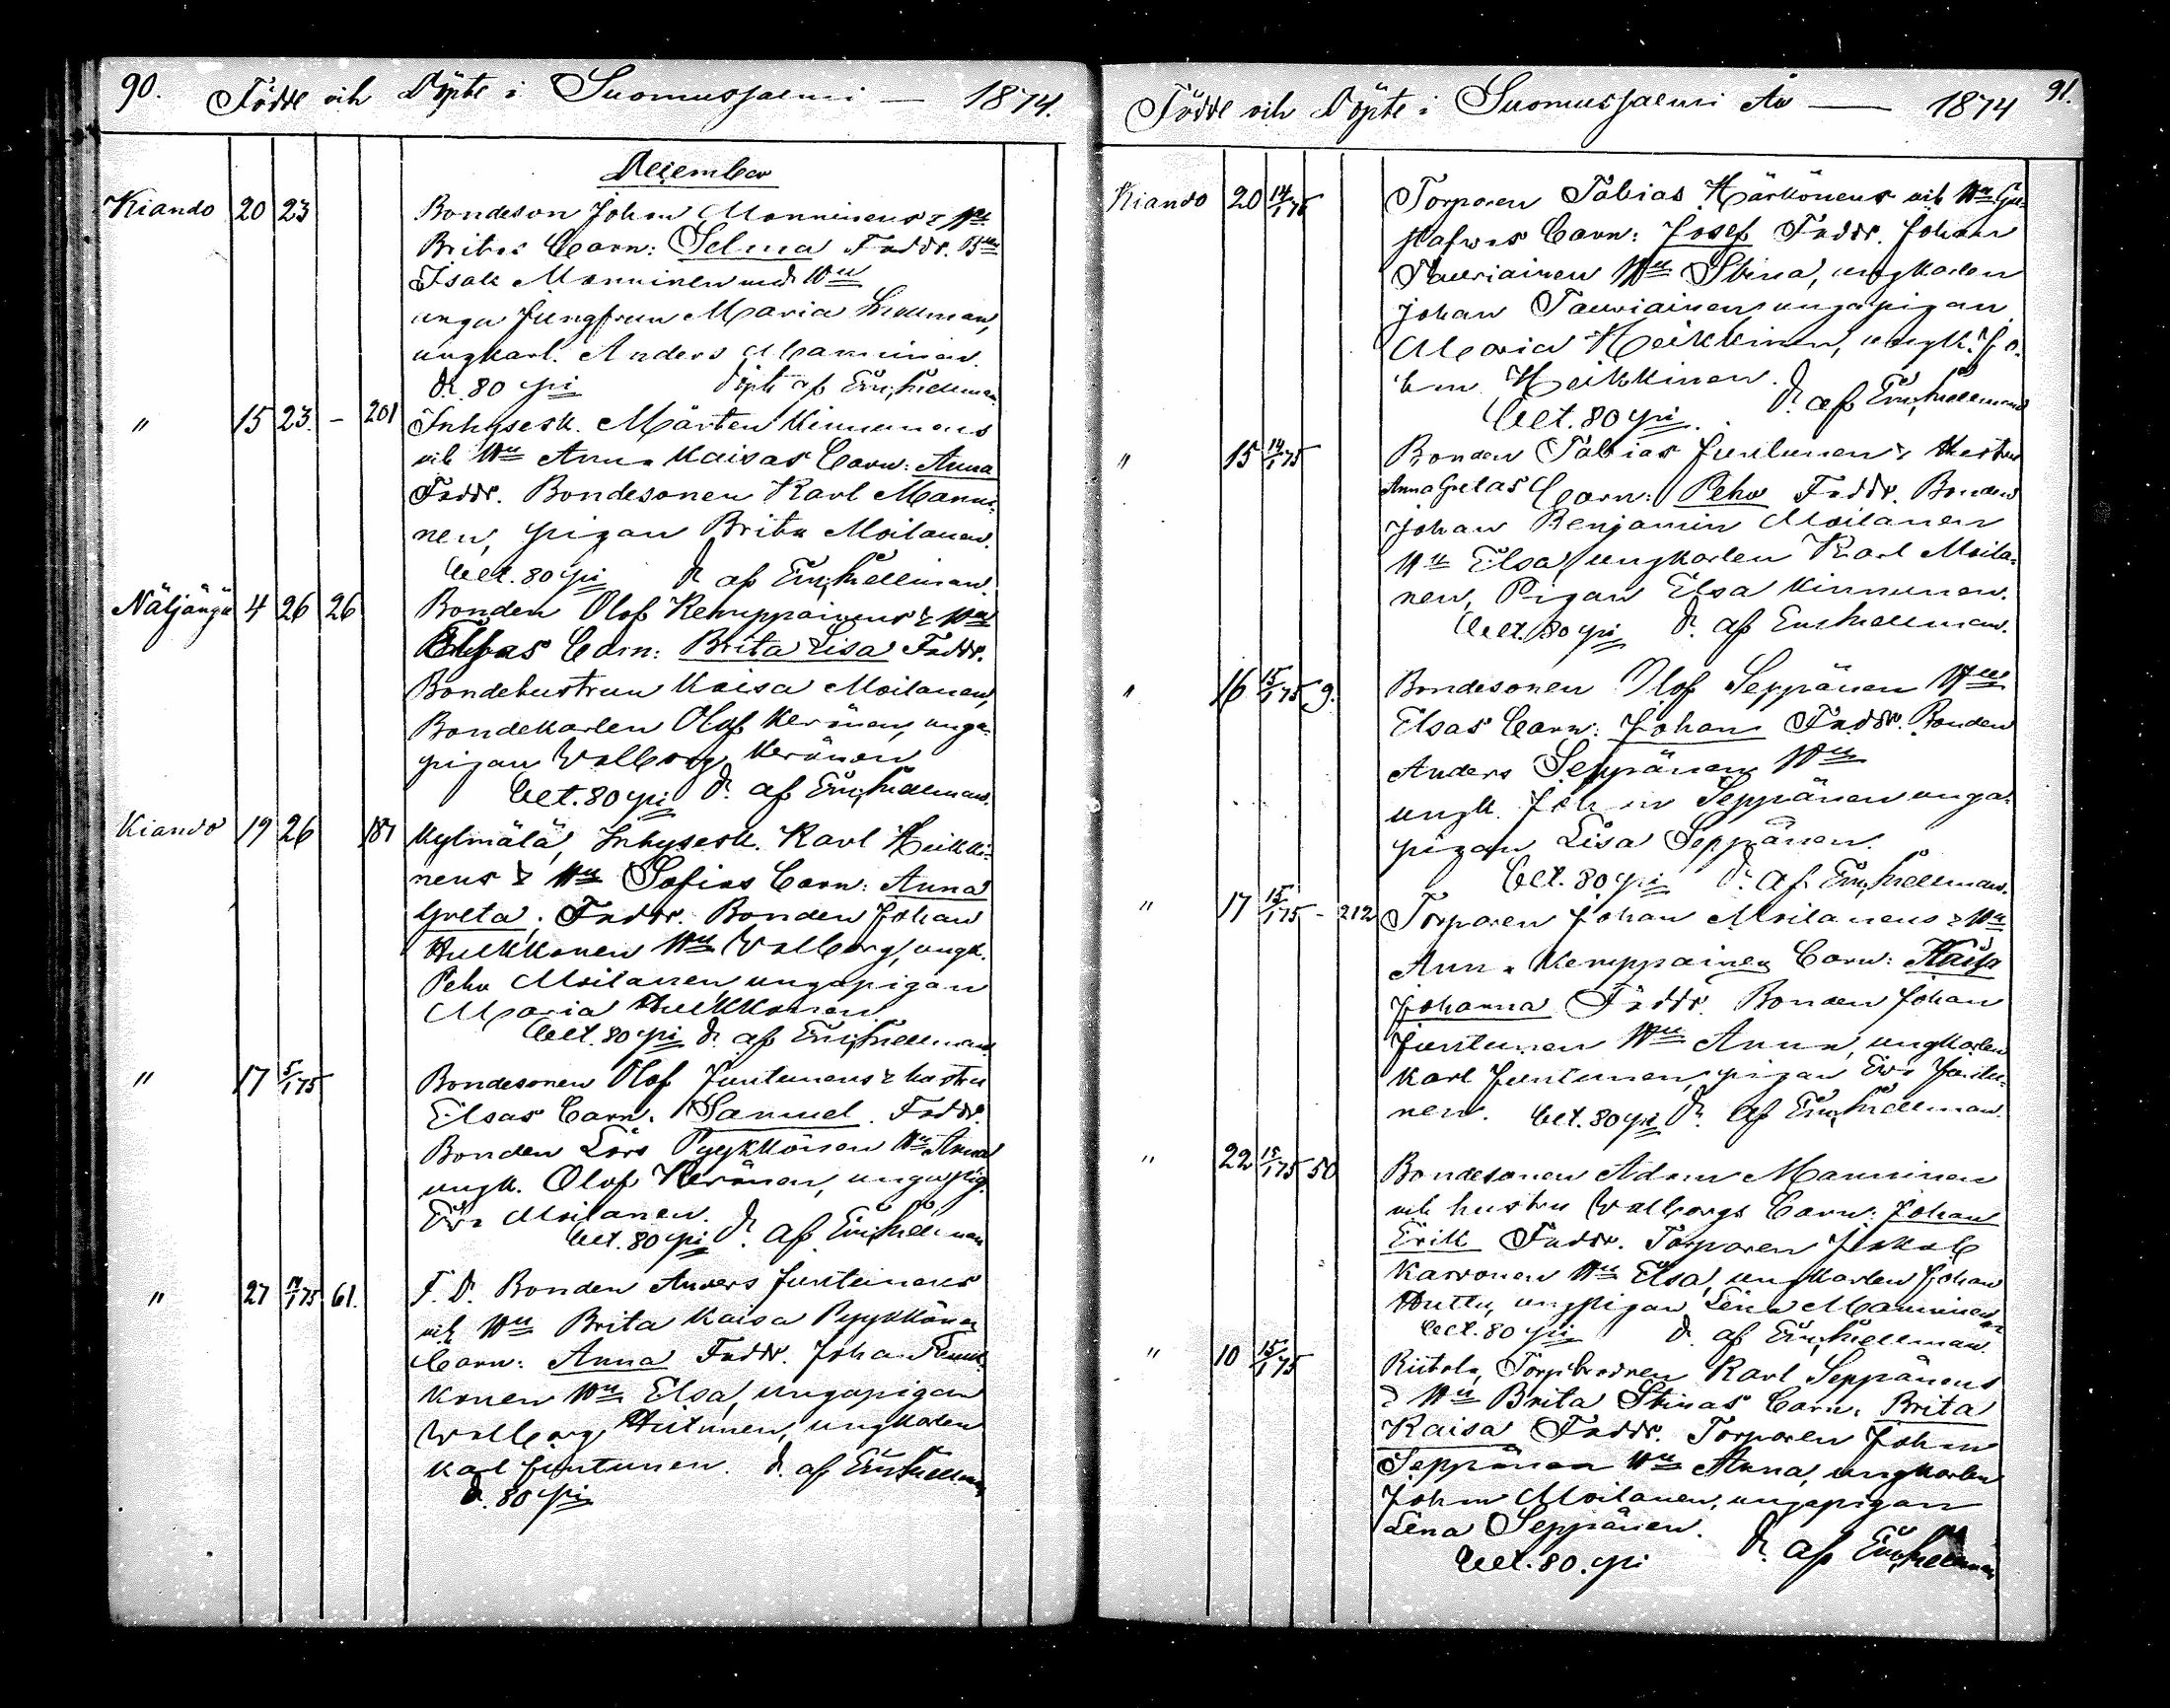 90. Födde och Döpte i Suomussalmi — 1874.
December
Kiando 20 23 Bondeson Johan Manninens & Hu
Britas Barn: Selma Faddr. Bn
Isak Manninen med Hu
unga Jungfrun Maria Hællman,
ungkarl. Anders Manninen.
Bt. 80 pi Döpt af Em. Snellman
" 15 23. – 201 Inhysesk. Mårten Kinnunens
och Hu Anna Kaisas Barn: Anna
Faddr. Bondesonen Karl Manni-
nen, pigan Brita Moilanen.
Bet. 80 pi D. af Em. Snellman.
Näljängä 4 26 26 Bonden Olof Kemppainens & Hu
Elsas Barn: Brita Lisa Faddr.
Bondehustrun Kaisa Moilanen,
Bondekarlen Olof Keränen, unga
pigan Walborg Keränen
Bet. 80 pi D. af Em. Snellman.
Kiando 19 26 187 Kylmälä, Inhysesk. Karl Heikki-
nens & Hu Sofias Barn: Anna
Greta. Faddr. Bonden Johan
Hulkkonen Hu Walborg, ungk.
Pehr Moilanen, ungapigan
Maria Hulkkonen
Bet. 80 pi D. af Em. Snellman
" 17 5/1 75 Bondesonen Olof Juntunens & hustru
Elsas Barn. Samuel. Faddr.
Bonden Lars Pyykkönen Hu Anna
ungk. Olof Keränen, unga pig.
Ewa Moilanen.
Bet. 80 pi D. af Em. Snellman
" 27 14/1 75 61. F. D. Bonden Anders Juntunens
och Hu Brita Kaisa Pyykkönen
Barn: Anna Faddr. Johan
konen Hu Elsa, ungapigan
Walborg Hiltunen, ungkarlen
Karl Juntunen. D. af Em. Snellman
B. 80 pi
Födde och Döpte i Suomussalmi År — 1874 91.
Kiando 20 14/1 75 Torparen Tobias Härkönens och Hu Gu-
stafwas Barn: Josef Faddr. Johan
Tauriainen Hu Stina, ungkarlen
Johan Tauriainen, ungapigan
Maria Heikkinen, ungk. Jo-
han Heikkinen.
Bet. 80 pi. D. af Em. Snellman
" 15 14/1 75 Bonden Tobias Juntunen & Hustru
Anna Gretas Barn: Pehr Faddr. Bonden
Johan Benjamin Moilanen
Hu Elsa, ungkarlen Karl Moila-
nen, Pigan Elsa Kinnunen.
Bet. 80 pi D. af Em. Snellman.
" 16 15/1 75 9. Bondesonen Olof Seppänen Hu
Elsas Barn: Johan Faddr. Bonden
Anders Seppänen Hu
ungk. Johan Seppänen unga-
pigan Lisa Seppänen.
Bet. 80 pi D. af Em. Snellman.
" 17 15/1 75 – 212 Torparen Johan Moilanens & Hu
Anna Kemppainen Barn: Kaisa
Johanna Faddr. Bonden Johan
Juntunen Hu Anna, ungkarlen
Karl Juntunen, pigan Ewa Juntu-
nen. Bet. 80 pi D. af Em. Snellman.
" 22 15/1 75 50 Bondesonen Adam Manninen
och hustru Walborgs Barn: Johan
Erik Faddr. Torparen Jakob
Karvonen Hu Elsa, ungkarlen Johan
Huttu, ungpigan Lena Manninen
Bet. 80 pi D. af Em. Snellman.
" 10 15/1 75 Riitola, Torpbrodren Karl Seppänens
& Hu Brita Stinas Barn. Brita
Kaisa Faddr. Torparen Johan
Seppänen Hu Anna, ungkarlen
Johan Moilanen, ungapigan
Lena Seppänen.
Bet. 80. pi D. af Em. Snellman